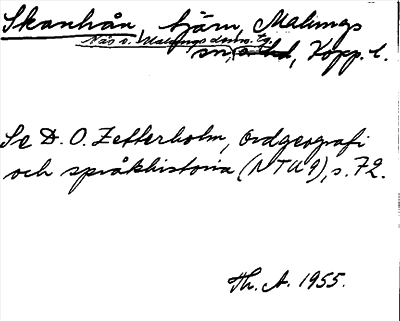 Skanhån, tjärn, Malungs
Näs s. Malungs doms. tg.
sn, o. hd, Kopp. l.
Se D. O. Zetterholm, Ordgeografi
och språkhistoria (NTU 9), s. 72.
Th. A. 1955.